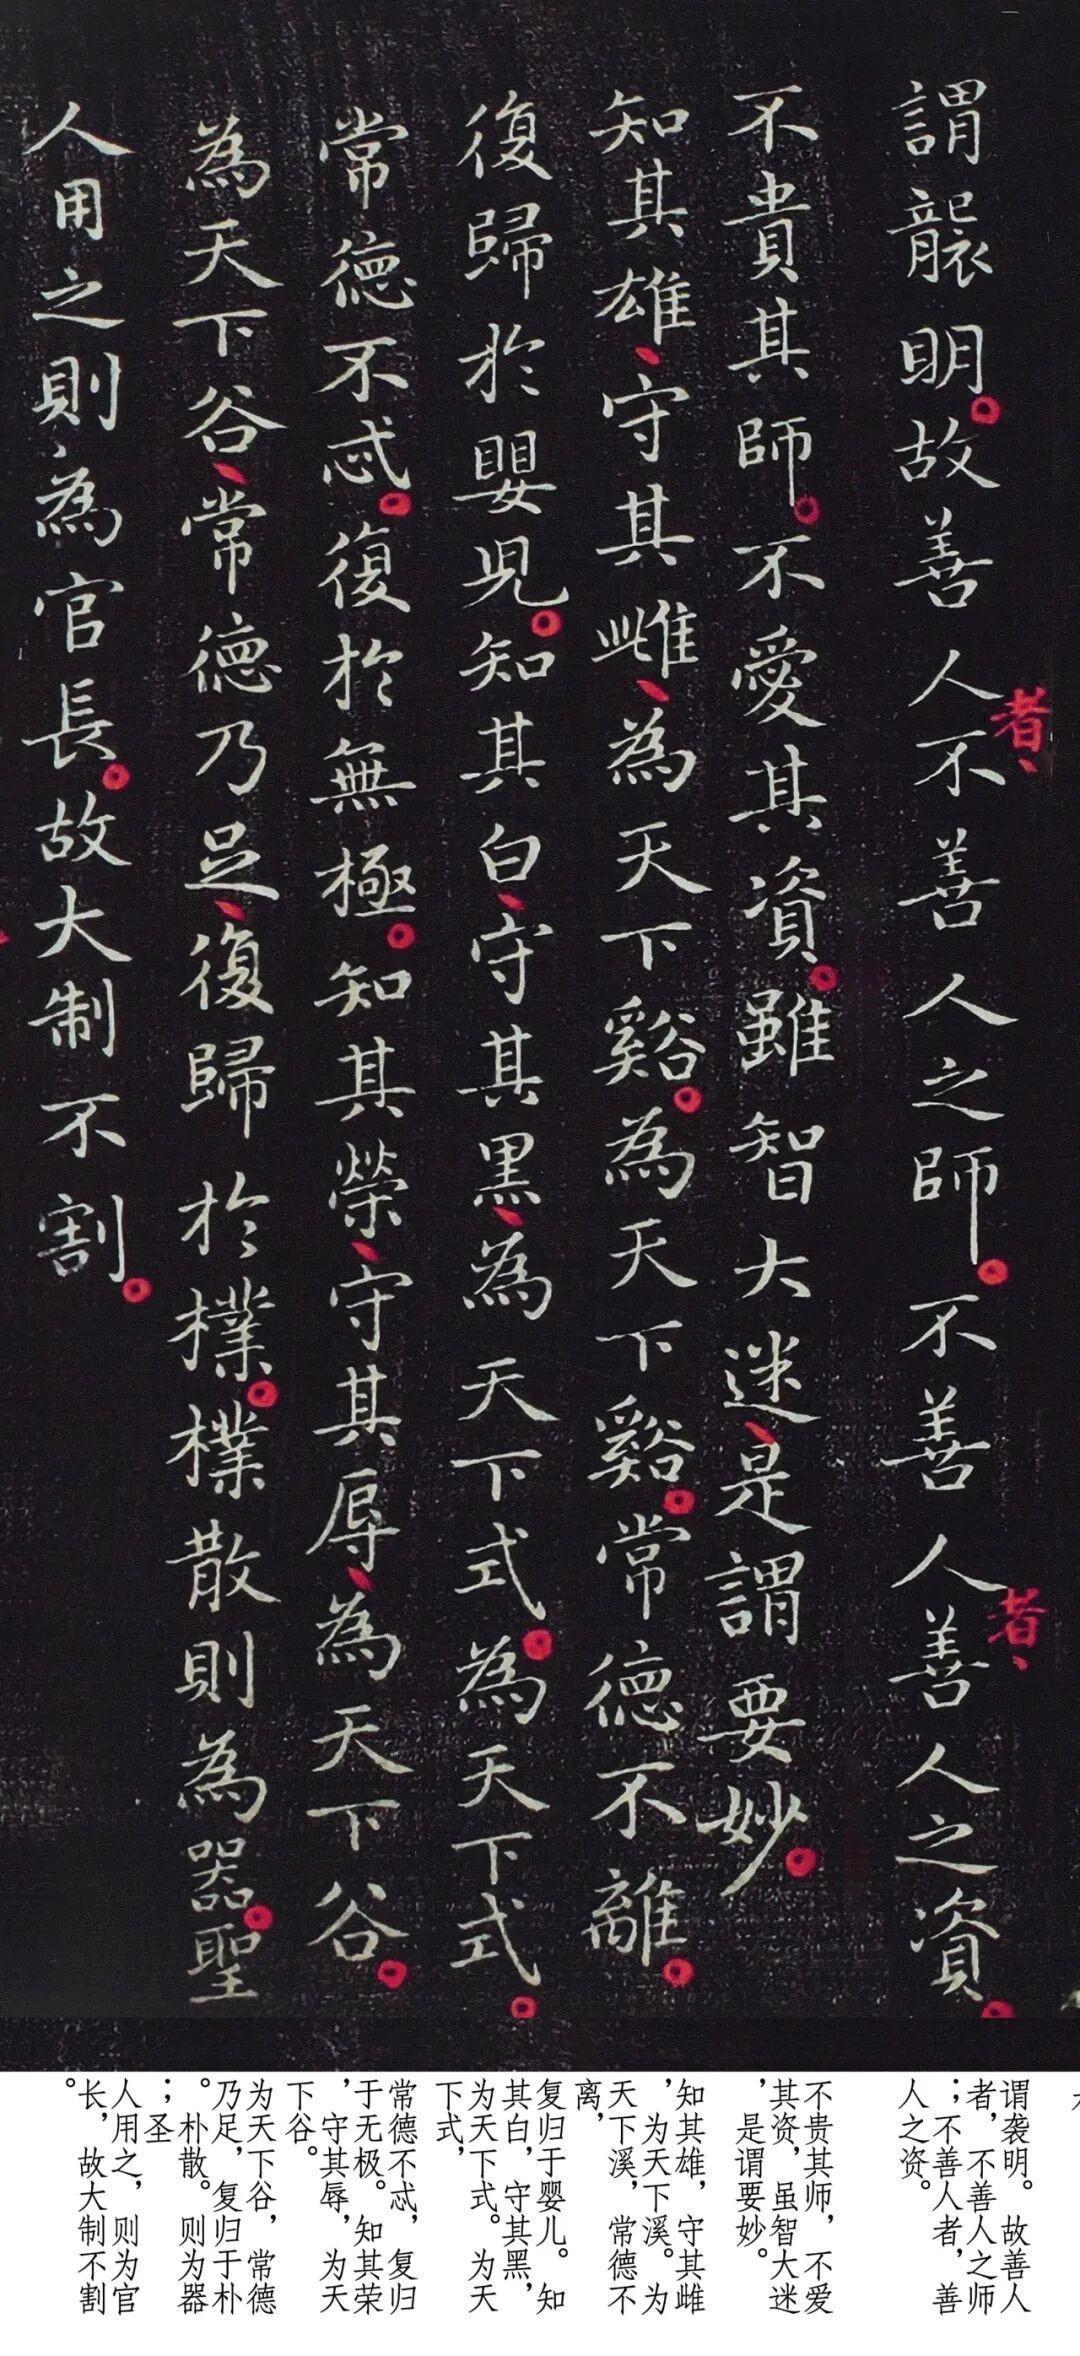 謂襲明。故善人者、不善人之師。不善人者、善人之資。
不貴其師。不愛其資。雖智大迷、是謂要妙。
知其雄、守其雌、為天下谿。為天下谿。常德不離。
復歸於嬰兒。知其白、守其黑、為天下式。為天下式。
常德不忒。復於無極。知其榮、守其辱、為天下谷。
為天下谷、常德乃足、復歸於樸。樸散則為器。聖
人用之則、為官長。故大制不割。
谓袭明。故善人
者，不善人之师
；不善人者，善
人之资。
不贵其师，不爱
其资，虽智大迷
，是谓要妙。
知其雄，守其雌
，为天下溪。为
天下溪，常德不
离，
复归于婴儿。知
其白，守其黑，
为天下式。为天
下式，
常德不忒，复归
于无极。知其荣
，守其辱，为天
下谷。
为天下谷，常德
乃足，复归于朴
。朴散。则为器
；圣
人用之，则为官
长，故大制不割
。